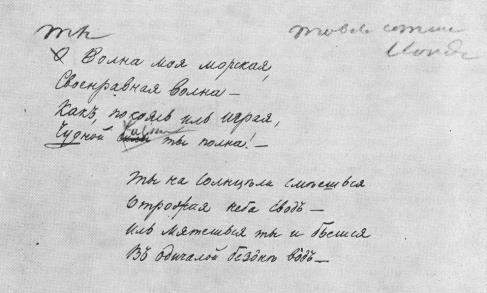 О Волна моя морская,
Своенравная волна —
Какъ, покоясь иль играя,
Чудной жизни ты полна! —
Ты на солнце ла смѣешься
Отрожая неба сводъ —
Иль мятешься ты и бьешся
Въ одичалой безднѣ водъ —